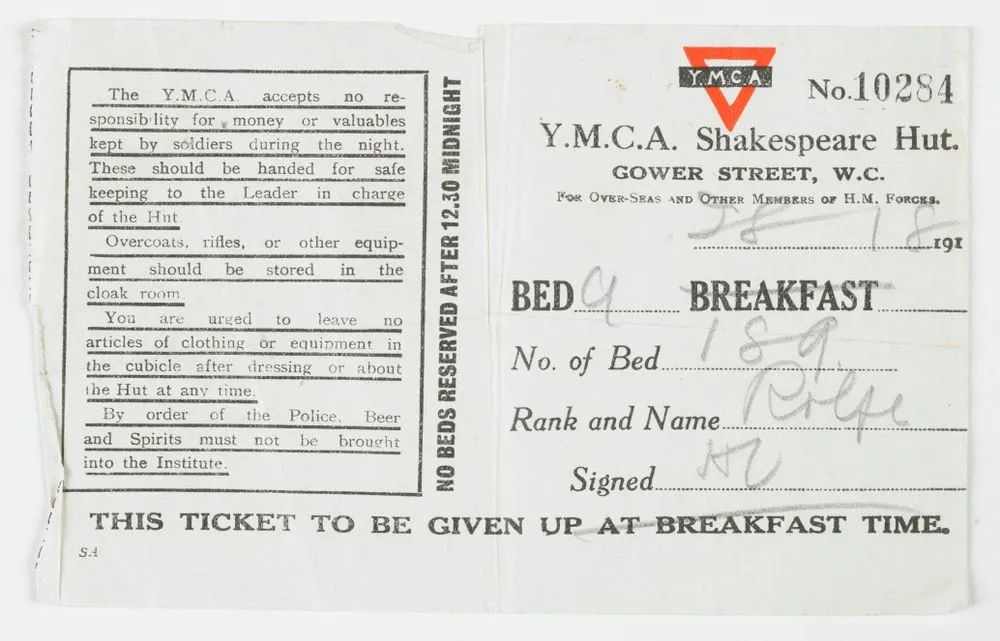 The Y.M.C.A. accepts no re-
sponsibility for money or valuables
kept by soldiers during the night.
These should be handed for safe
keeping to the Leader in charge
of the Hut
Overcoats, rifles, or other equip-
ment should be stored in the
cloak room
You are urged to leave no
articles of clothing or equipment in
the cubicle after dressing or about
the Hut at any time.
By order of the Police, Beer
and Spirits must not be brought
into the Institute.
NO BEDS RESERVED AFTER 12.30 MIDNIGHT
YMCA
No. 10284
Y.M.C.A. Shakespeare Hut.
GOWER STREET, W.C.
FOR OVER-SEAS AND OTHER MEMBERS OF H.M. FORCES.
18 191
BED 9 BREAKFAST
No. of Bed 189
Rank and Name Rolfe
Signed
THIS TICKET TO BE GIVEN UP AT BREAKFAST TIME.
SA